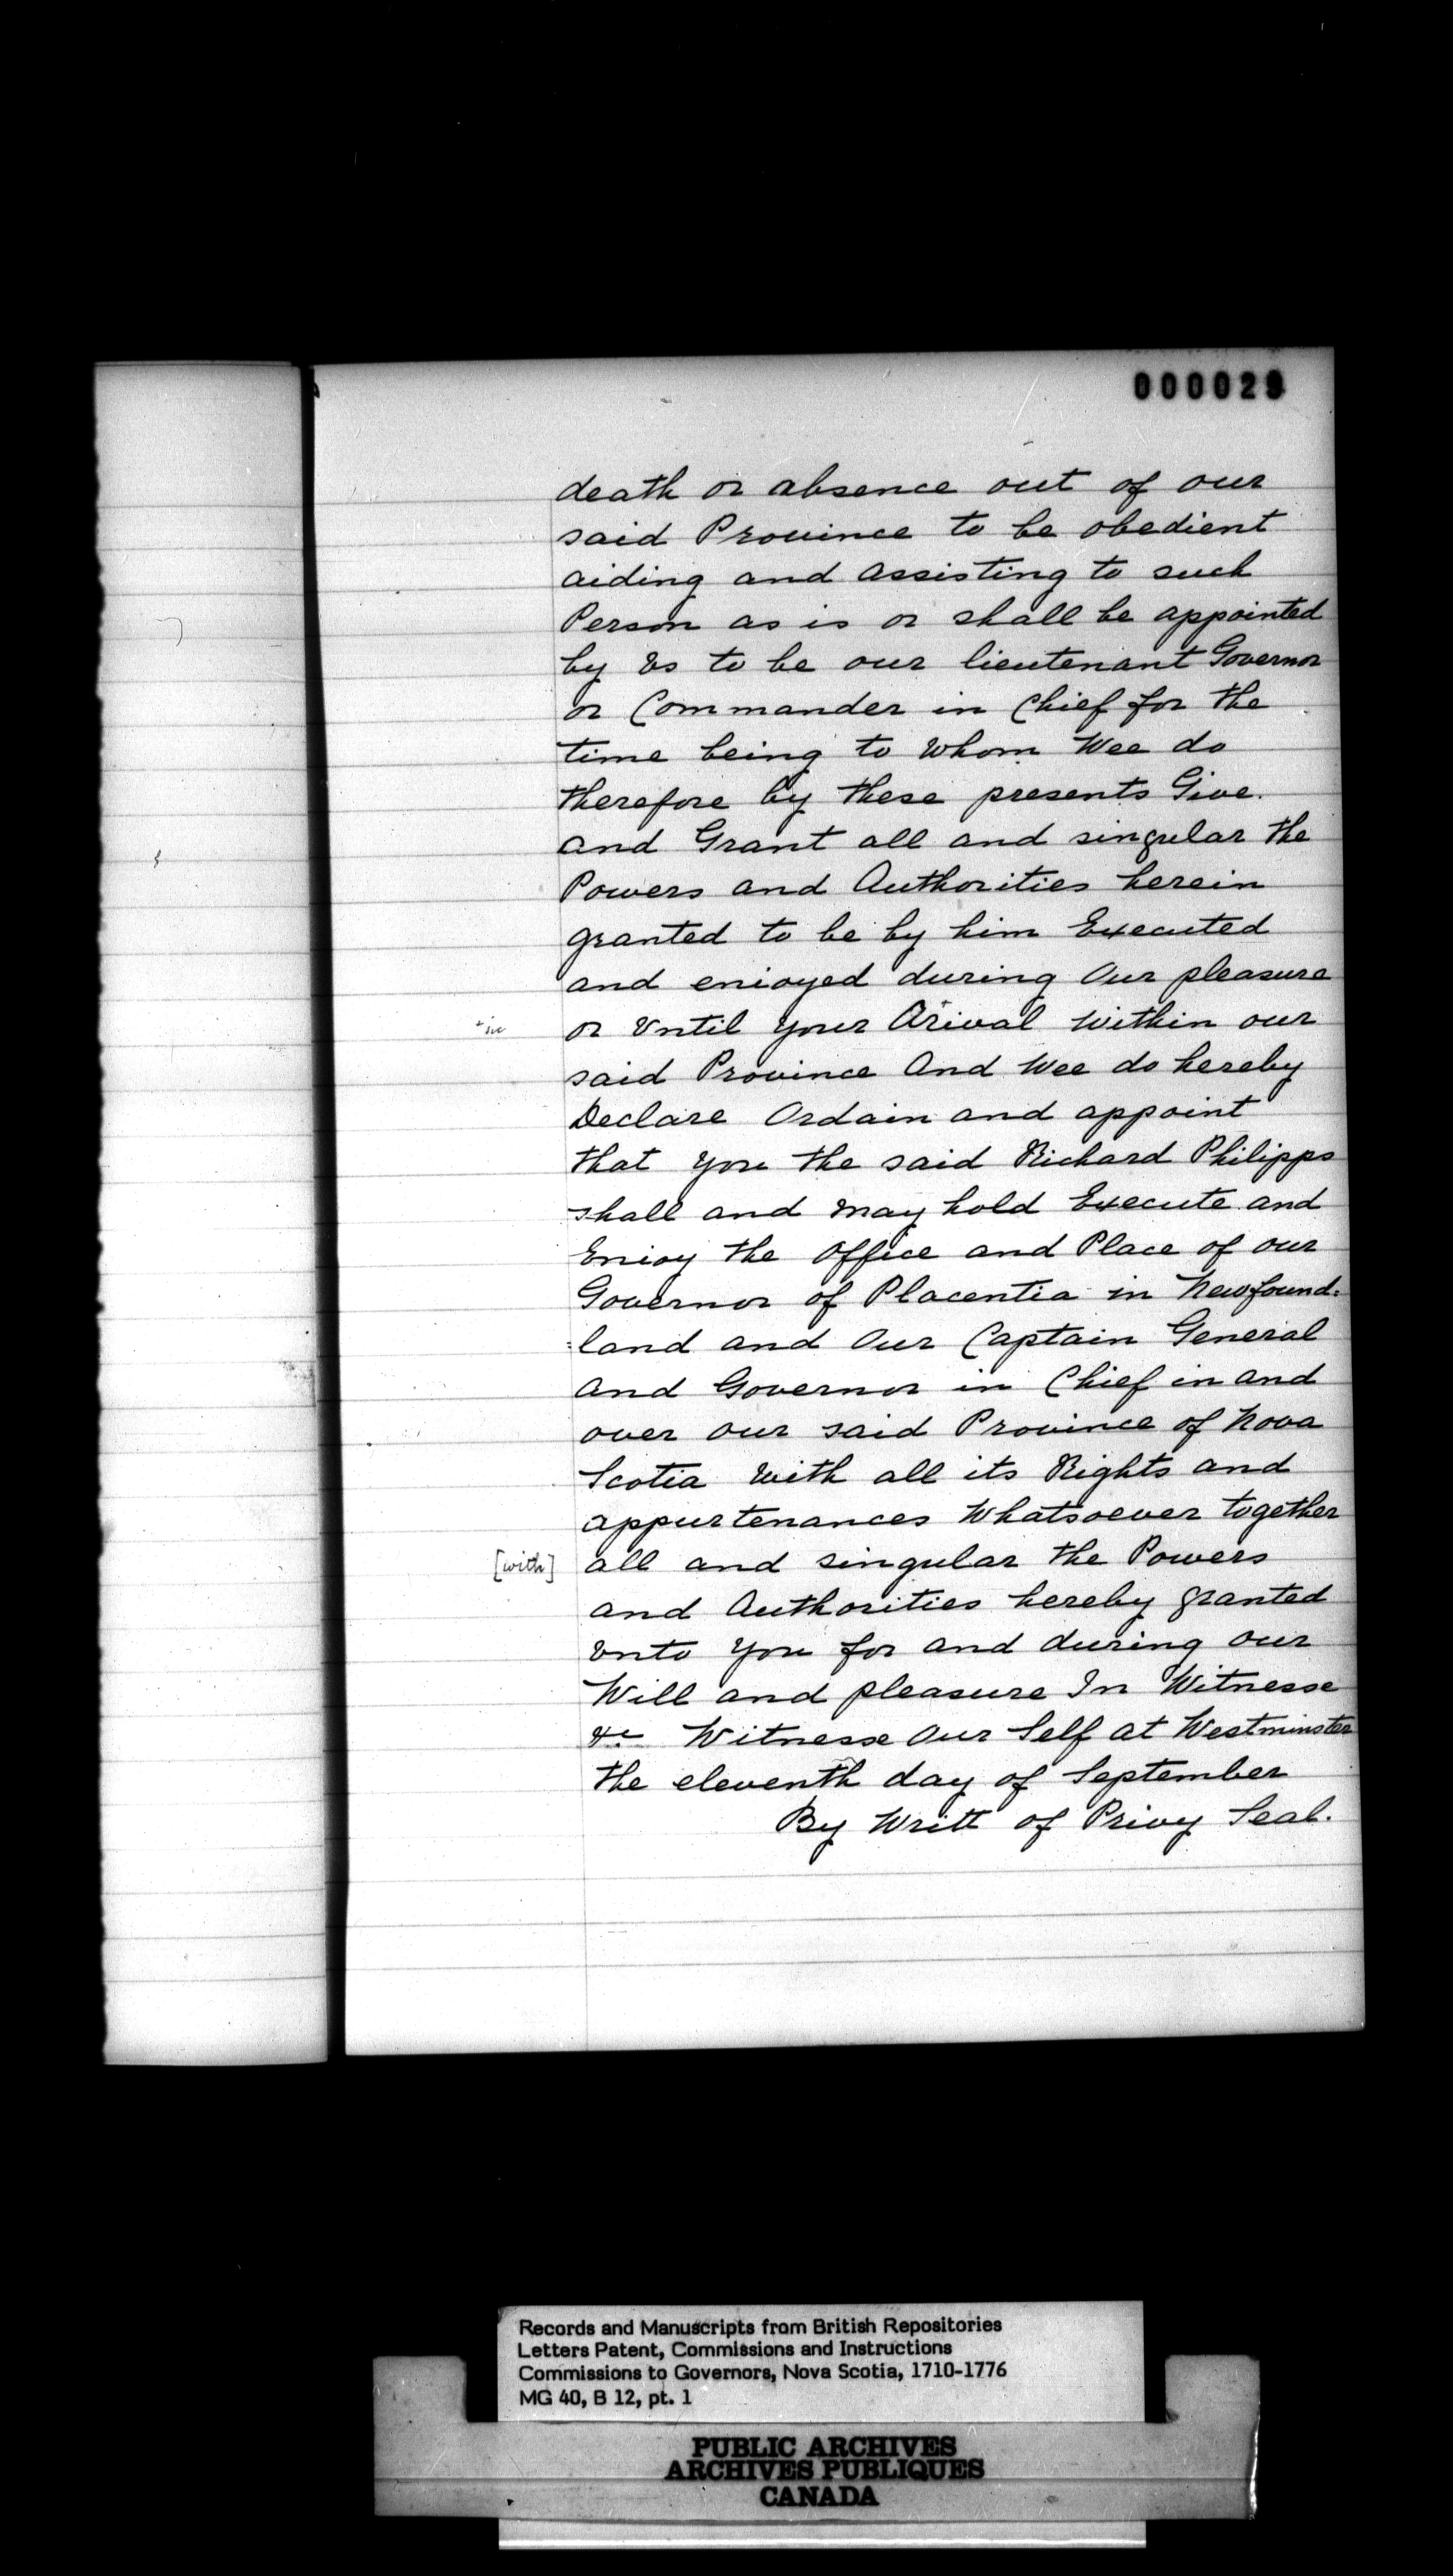 000029
death or absence out of our
said Province to be obedient
aiding and assisting to such
Person as is or shall be appointed
by Vs to be our lieutenant Governor
or Commander in Chief for the
time being to Whom Wee do
therefore by these presents Give.
and Grant all and singular the
Powers and Authorities herein
granted to be by him Executed
and enioyed during Our pleasure
or Vntil your Arival Within our
said Province And Wee do hereby
Declare Ordain and appoint
that you the said Richard Philipps
shall and may hold Execute and
Enioy the Office and Place of our
Governor of Placentia in Newfound=
=land and Our Captain General
and Governor in Chief in and
over our said Province of Nova
Scotia With all its Rights and
appurtenances Whatsoever together
[with] all and singular the Powers
and Authorities hereby granted
Vnto You for and during our
Will and pleasure In Witnesse
&c Witnesse Our Self at Westminster
the eleventh day of September
By Writt of Privy Seal.
Records and Manuscripts from British Repositories
Letters Patent, Commissions and Instructions
Commissions to Governors, Nova Scotia, 1710-1776
MG 40, B 12, pt. 1
PUBLIC ARCHIVES
ARCHIVES PUBLIQUES
CANADA